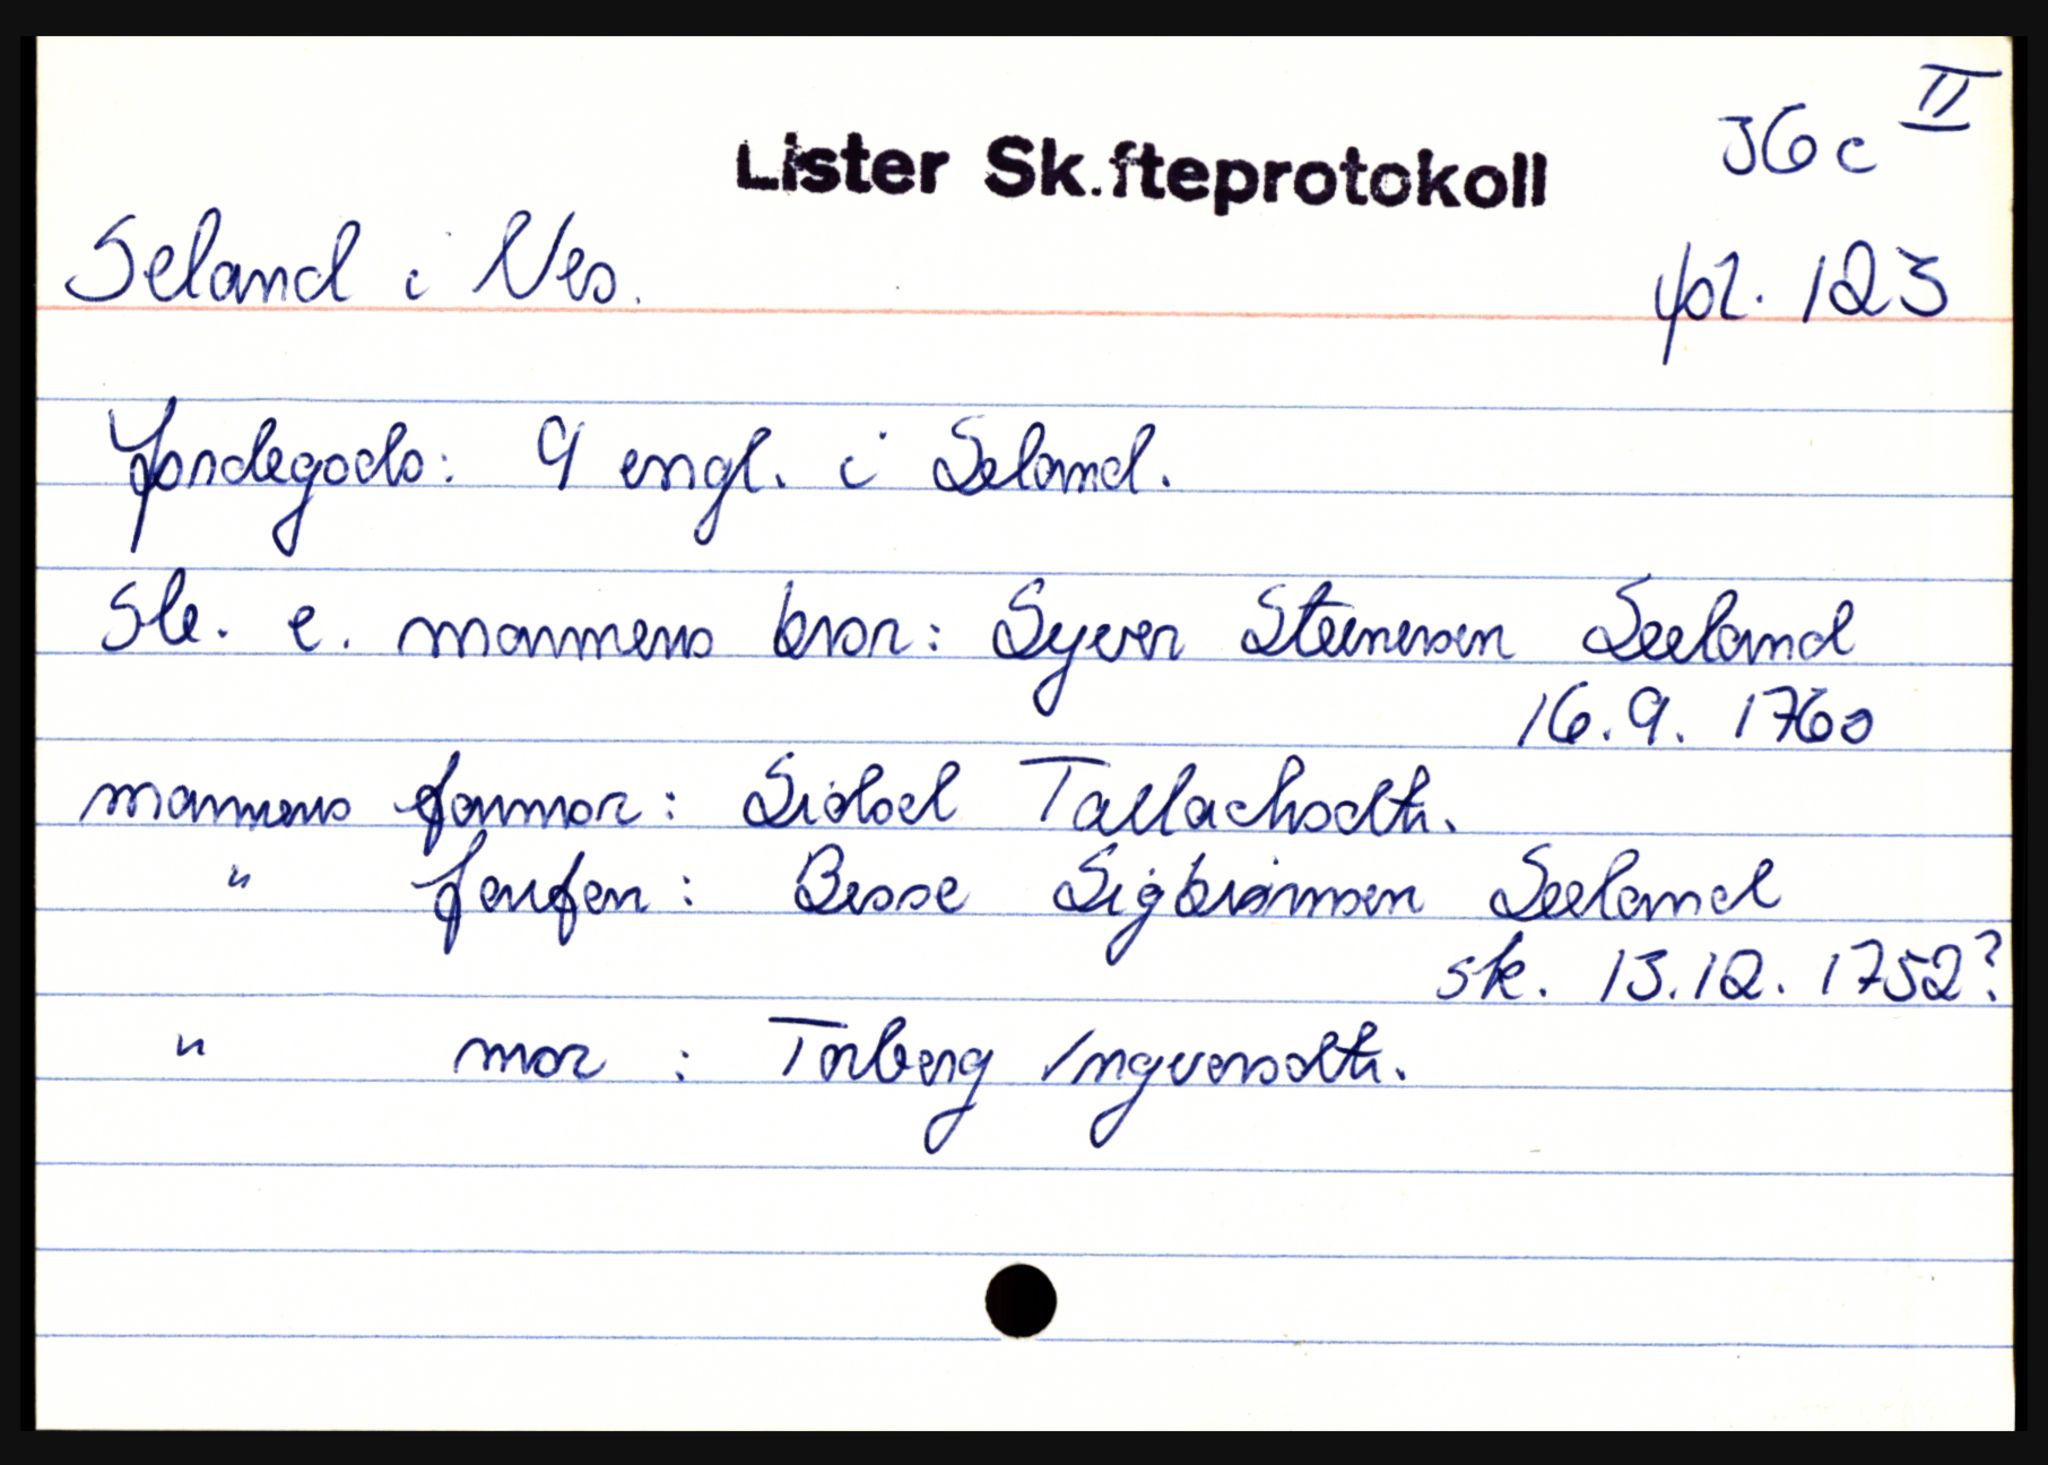 II
Lister Sk.fteprotokoll 36 c
Seland i Nes. fol. 123
Jordegods: 9 engl. i Seland.
Sk. e. mannens bror: Syver Steinersen Seeland
16.9. 1760
mannens farmor: Sidsel Tallachsdtr.
" farfar: Besse Sigbiørnsen Seeland
sk. 13.12. 1752?
" mor : Torberg Ingversdtr.